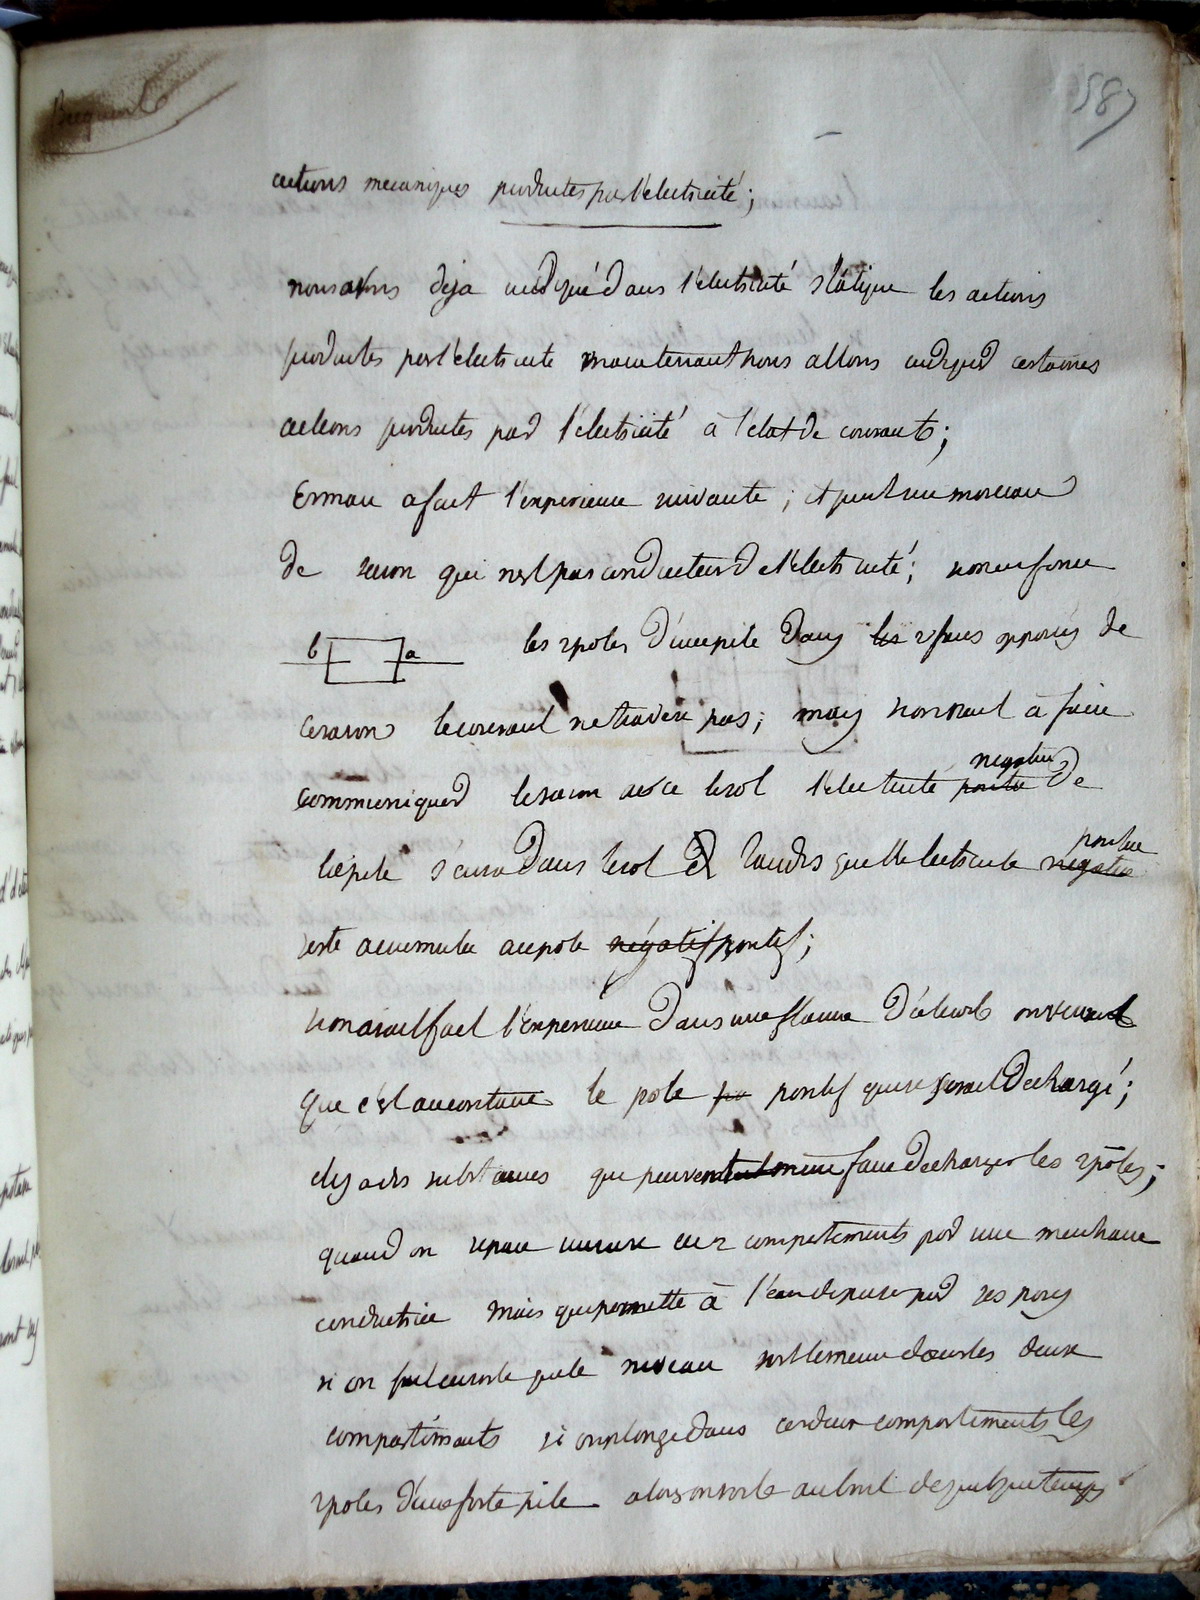 Becquerel
587
actions mecaniques produites par l'electricité;
nous avons deja indiqué dans l'électricité statique les actions
produites par l'electricite maintenant nous allons indiquer certaines
actions produites par l'électricité à l'état de courants;
Erman a fait l'experience suivante; il prend un morceau
de savon qui n'est pas conducteur de l'électricité; si on enfonce
b a les 2 poles d'une pile dans les 2 faces opposées de
ce savon le courant ne traverse pas; mais si on vient à faire
negative
communiquer le savon avec le sol l'electricité positive de
positive
la pile s'ecoule dans le sol et tandis que l'electricite negative
reste accumulée au pole négatif positif;
si on avait fait l'experience dans une flamme d'alcool on verrait
que c'est au contraire le pole po positif qui se serait dechargé;
des substances que peuvent faire decharger les 2 pôles;
quand on separe en 2 compartiments par une
conductrice mais qui permette à l'eau de passer par ses pores
si on fait ensorte que le niveau soit le meme dans les deux
compartiments si on plonge dans ces deux compartiments les
2 poles d'une forte pile alors on voit au bout de quelque temps